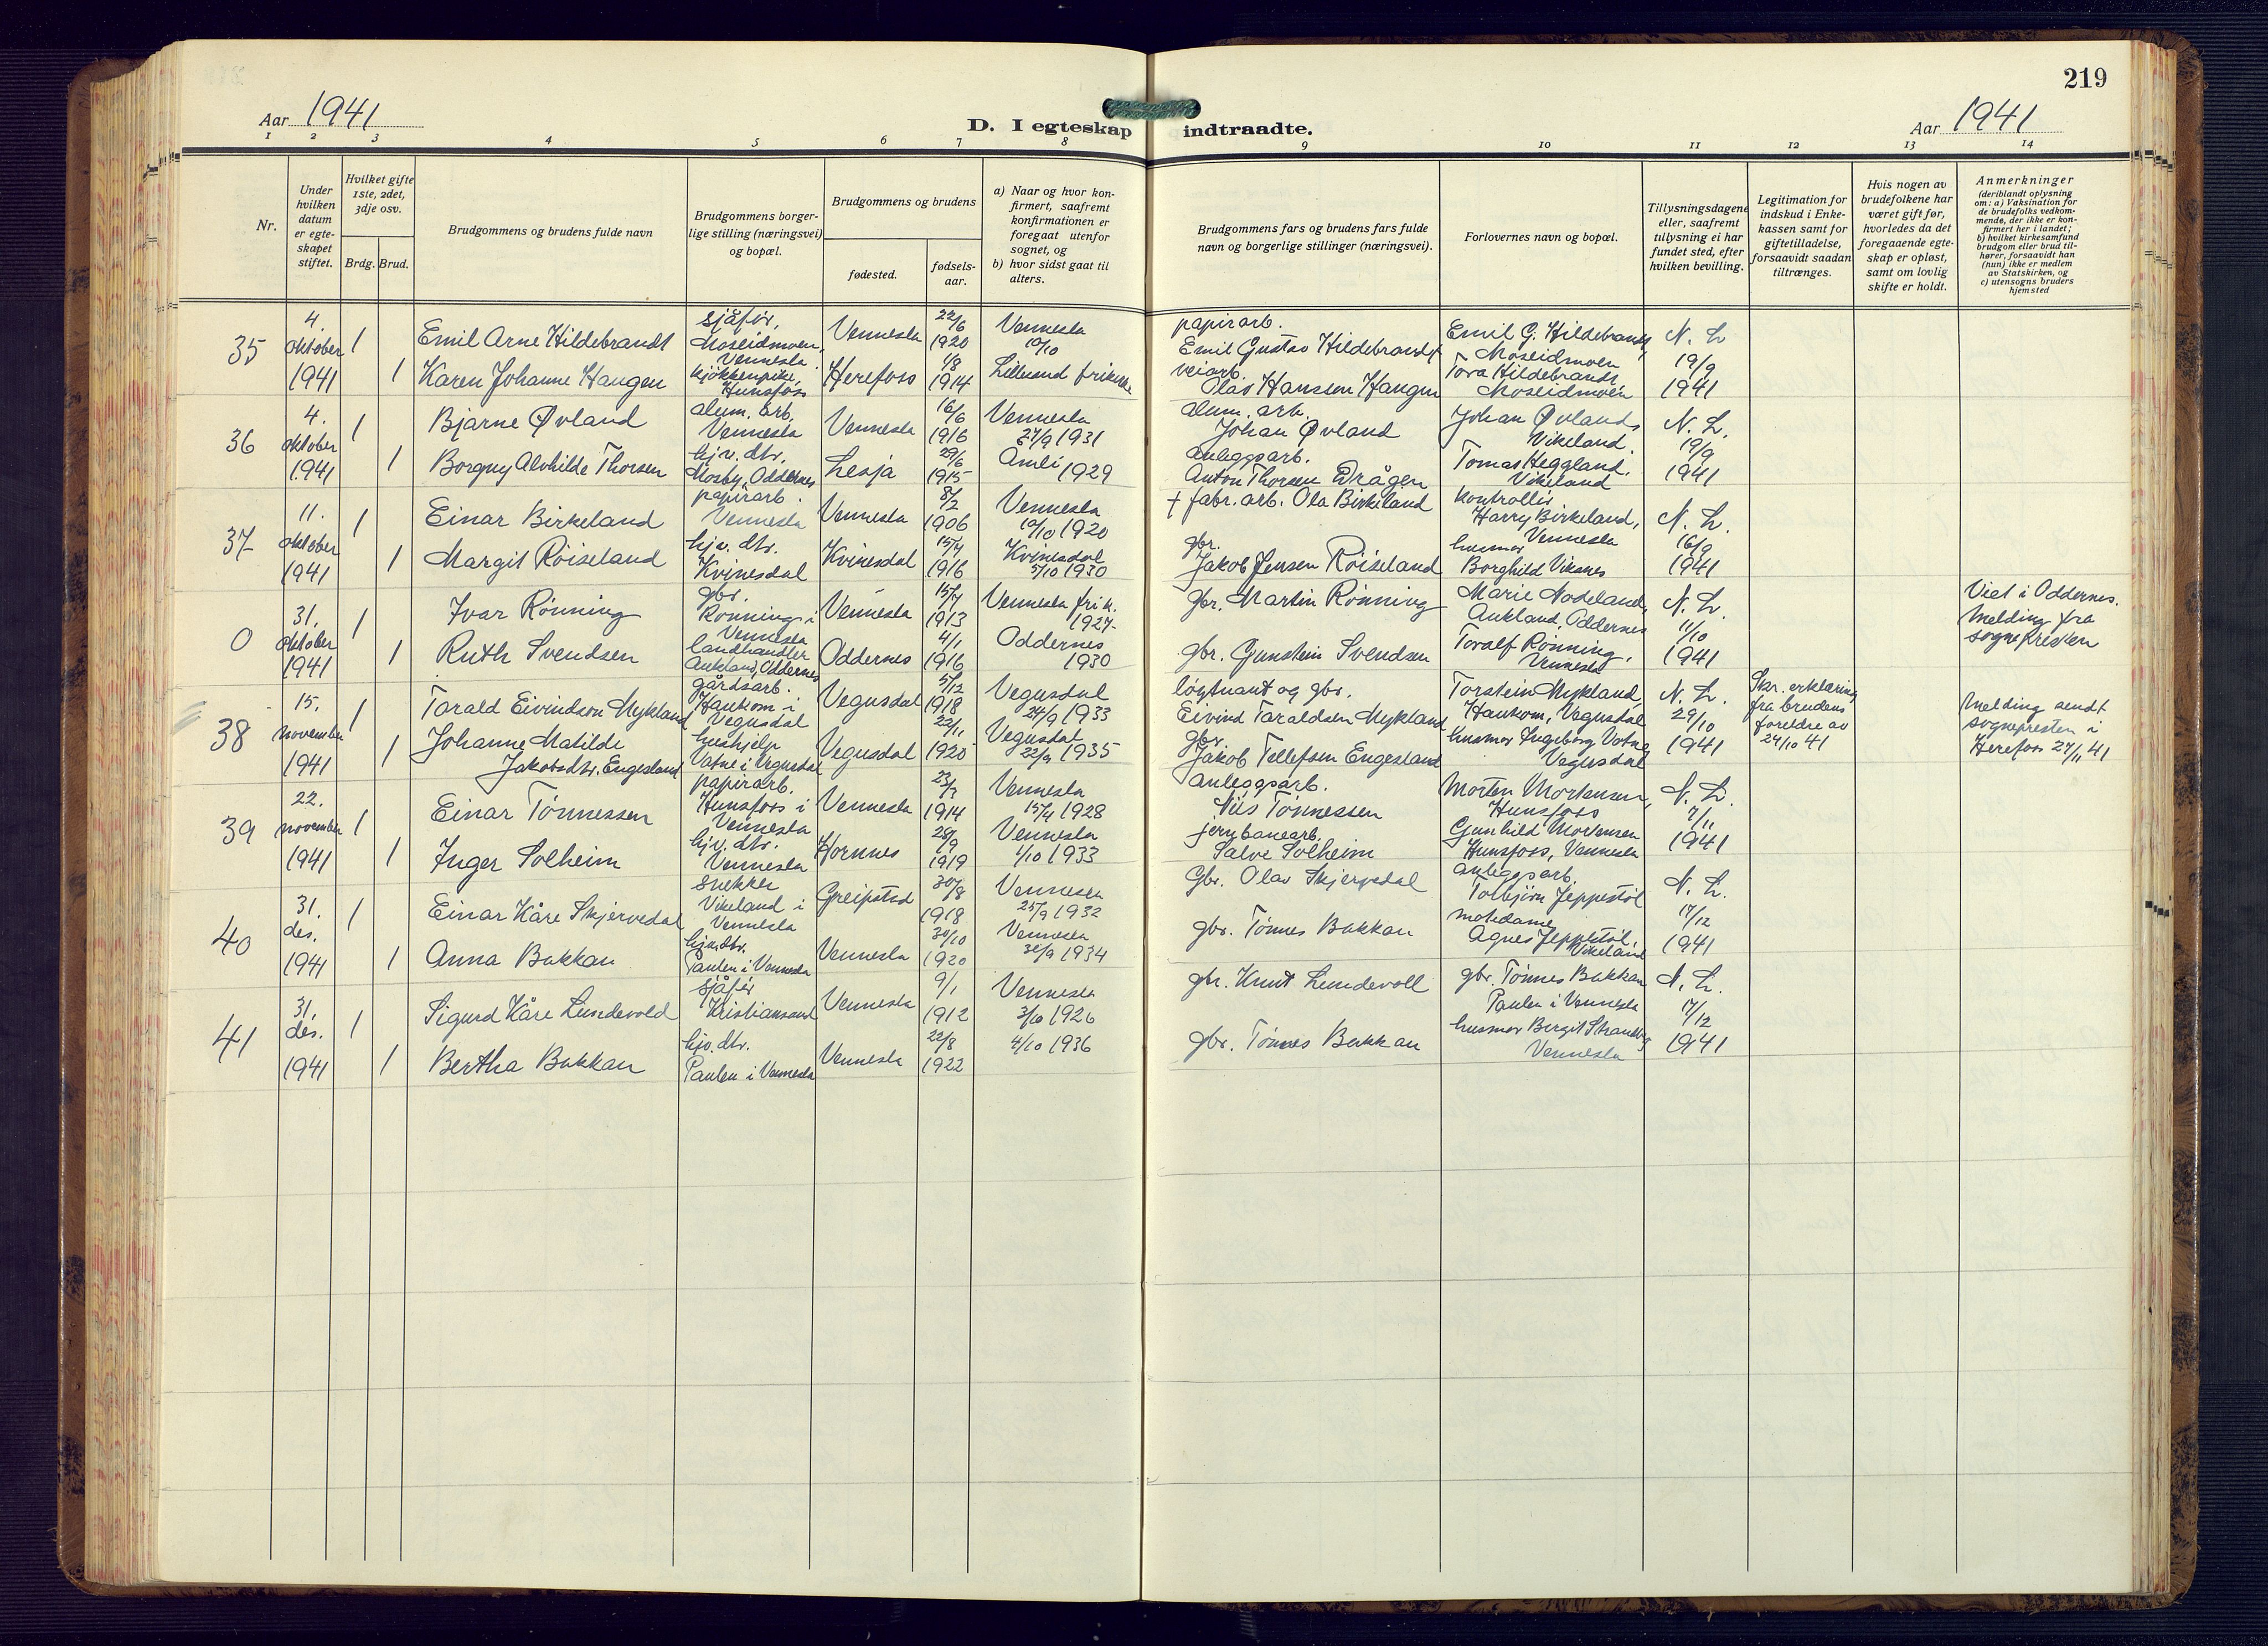 219
Aar 1941
D. I egteskap indtraadte.
Aar 1941
1 2 3 4 5 6 7 8 9 10 11 12 13 14
Nr.
Under hvilken datum er egte-skapet stiftet.
Hvilket gifte 1ste, 2det, 3dje osv.
Brdg. Brud.
Brudgommens og brudens fulde navn
Brudgommens borger-lige stilling (næringsvei) og bopæl.
Brudgommens og brudens
fødested.
fødsels-aar.
a) Naar og hvor kon-firmert, saafremt konfirmationen er foregaat utenfor sognet, og
b) hvor sidst gaat til alters.
Brudgommens fars og brudens fars fulde navn og borgerlige stillinger (næringsvei).
Forlovernes navn og bopæl.
Tillysningsdagene eller, saafremt tillysning ei har fundet sted, efter hvilken bevilling.
Legitimation for indskud i Enke-kassen samt for giftetilladelse, forsaavidt saadan tiltrænges.
Hvis nogen av brudefolkene har været gift før, hvorledes da det foregaaende egte-skap er opløst, samt om lovlig skifte er holdt.
Anmerkninger
(deriblandt oplysning om: a) Vaksination for de brudefolks vedkom-mende, der ikke er kon-firmert her i landet; b) hvilket kirkesamfund brudgom eller brud til-hører, forsaavidt han (hun) ikke er medlem av Statskirken, og c) utensogns bruders hjemsted
35
4. oktober 1941
1 Emil Arne Hildebrandt
sjåfør, Moseidmoen, Vennesla
Vennesla
22/6 1920
Vennesla 10/10
papirarb. Emil Gustav Hildebrandt
Emil G. Hildebrandt, Moseidmoen
N. L. 19/9 1941
1 Karen Johanne Haugen
kjøkkenpike, Hunsfoss
Herefoss
1/8 1914
Lillesand frikirke
veiarb. Olav Hansen Haugen
Tora Hildebrandt Moseidmoen
36
4. oktober 1941
1 Bjarne Øvland
alum. arb. Vennesla
Vennesla
16/6 1916
Vennesla 27/9 1931
alum. arb. Johan Øvland
Johan Øvland, Vikeland
N. L. 19/9 1941
1 Borgny Alvhilde Thorsen
hjv. dtr. Mosby, Oddernes
Lesja
29/6 1915
Åmli 1929
anleggsarb. Anton Thorsen Drågen
Tomas Heggland, Vikeland
37
11. oktober 1941
1 Einar Birkeland
papirarb. Vennesla
Vennesla
8/2 1906
Vennesla 10/10 1920
+ fabr. arb. Ola Birkeland
kontrollør Harry Birkeland, Vennesla
N. L. 16/9 1941
1 Margit Röiseland
hjv. dtr. Kvinesdal
Kvinesdal
15/4 1916
Kvinesdal 5/10 1930
gbr. Jakob Jensen Röiseland
husmor Borghild Viksnes
0
31. oktober 1941
1 Ivar Rönning
gbr. Rönning i Vennesla
Vennesla
1913
Vennesla frik. 1927
gbr. Martin Rönning
Marie Modeland, Aukland, Oddernes
N. L. 11/10 1941
Viet i Oddernes. Melding fra sognepresten
1 Ruth Svendsen
landhandler Aukland, Oddernes
Oddernes
4/1 1916
Oddernes 1930
gbr. Gunstein Svendsen
Toralf Rönning, Vennesla
38
15. november 1941
1 Tarald Eivindson Mykland
gårdsarb. Haukom i Vegusdal
Vegusdal
5/12 1918
Vegusdal 24/9 1933
løytnant og gbr. Eivind Taraldsen Mykland
Torstein Mykland, Haukom, Vegusdal
N. L. 29/10 1941
Skr. erklæring fra brudens foreldre av 24/10 41
Melding sendt sognepresten i Herefoss 27/11 41
1 Johanne Matilde Jakobsdtr. Engesland
hushjelp Vatne i Vegusdal
Vegusdal
22/11 1920
Vegusdal 22/9 1935
gbr. Jakob Tellefsen Engesland
husmor Ingeborg Vatne, Vegusdal
39
22. november 1941
1 Einar Tönnessen
papirarb. Hunsfoss i Vennesla
Vennesla
1914
Vennesla 15/4 1928
anleggsarb. Nils Tönnessen
Morten Mortensen, Hunsfoss
N. L. 7/11 1941
1 Inger Solheim
hjv. dtr. Vennesla
Hornnes
1919
Vennesla 1/10 1933
jernbanearb. Salve Solheim
Gunhild Mortensen Hunsfoss, Vennesla
40
31. des. 1941
1 Einar Kåre Skjervedal
snekker Vikeland i Vennesla
Greipstad
30/8 1918
Vennesla 25/9 1932
Gbr. Olav Skjervedal
anleggsarb. Torbjörn Jeppestöl
N. L. 17/12 1941
1 Anna Bakkan
hjv. dtr. Paulen i Vennesla
Vennesla
30/10 1920
Vennesla 30/9 1934
gbr. Tönnes Bakkan
motedame Agnes Jeppestöl, Vikeland
41
31. des. 1941
1 Sigurd Kåre Lundevold
sjåfør Kristiansand
Vennesla
9/1 1912
Vennesla 3/10 1926
gbr. Knut Lundevoll
gbr. Tönnes Bakkan Paulen i Vennesla
N. L. 17/12 1941
1 Bertha Bakkan
hjv. dtr. Paulen i Vennesla
Vennesla
22/8 1922
4/10 1936
gbr. Tönnes Bakkan
husmor Bergit Vennesla